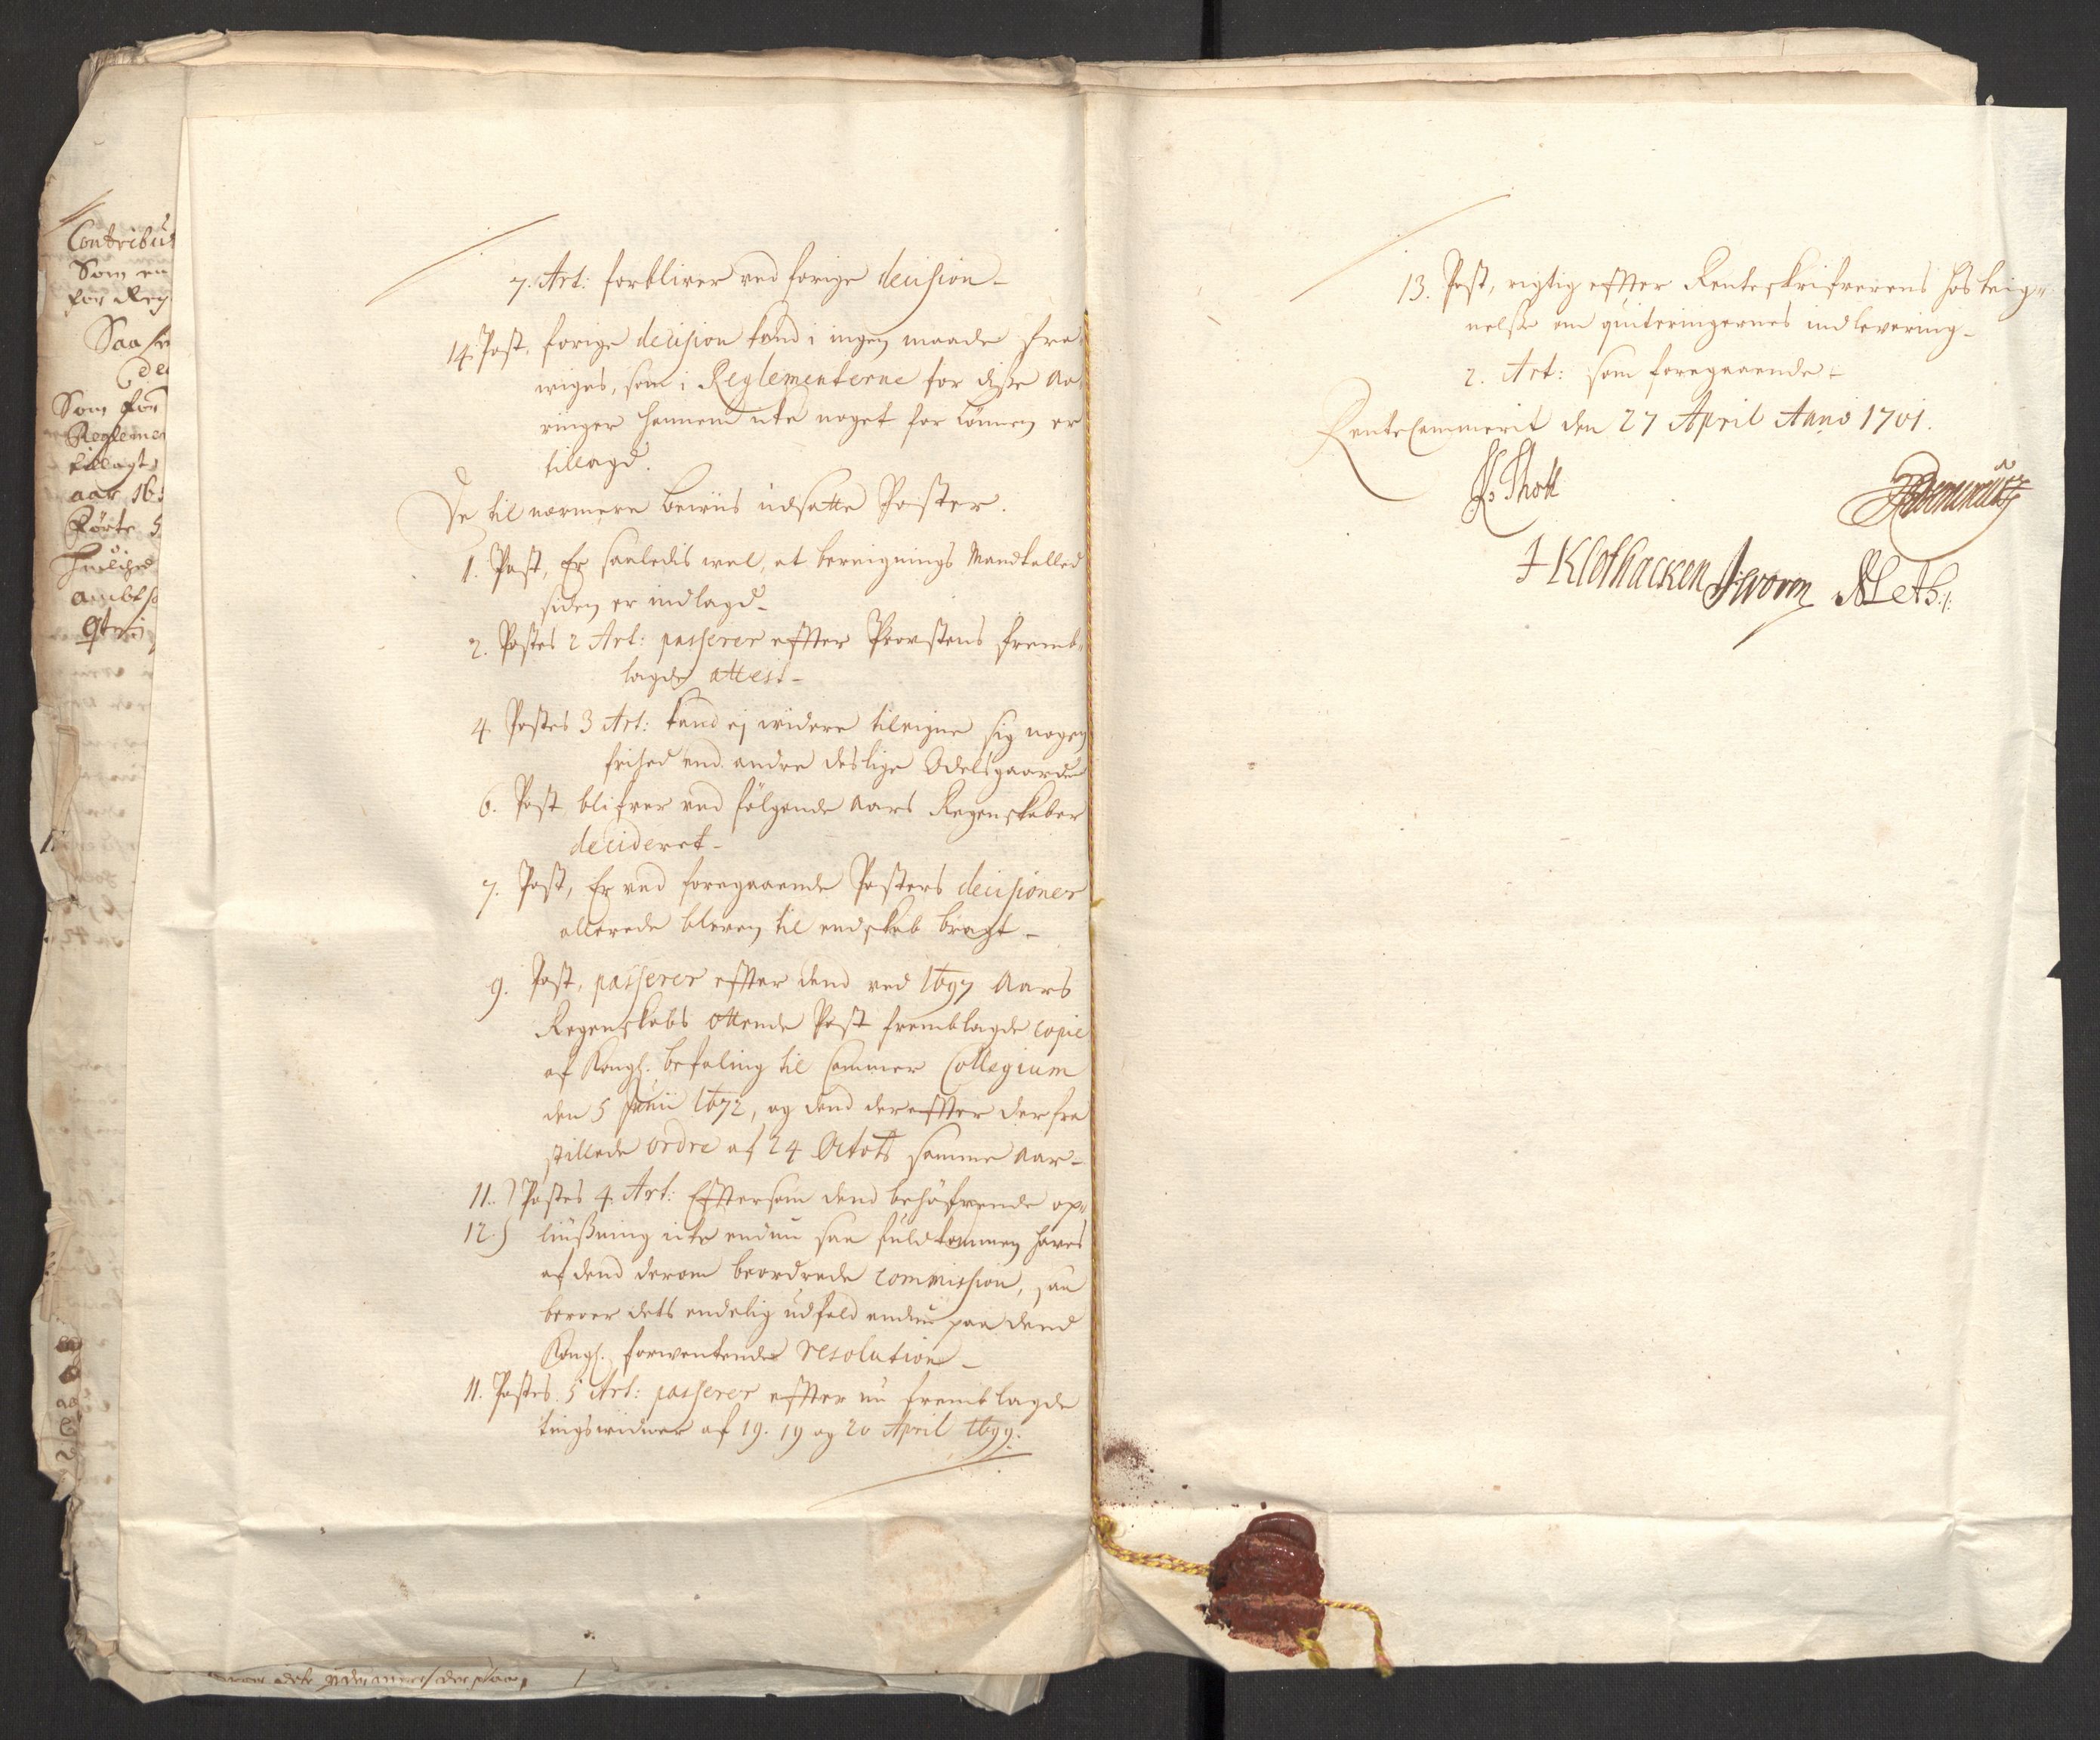 Contribu
Som en
for Reg
Saa
De
Som for
Regleme
tillagt
aar 16
Førte 5
ambts
7. Art: forbliver ved forige decision-
14. Post, forige decision kand i ingen maade fra-
wiges, som i Reglementerne for disse Aa-
ringer hannem icke noget for Lønnen er
tillagd.
De til nærmere beviis udsatte Poster.
1. Post, Er saaledis vel, at bereignings Mandtalled
siden er indlagd-
2. Postes 2 Art: passerer effter Provstens fremb-
lagde attest-
4. Postes 3 Art: kand ej widere tileigne sig nogen
frihed end andre deslige Odelsgaarde
6. Post blifver ved følgende Aars Regenskaber
decideret-
7. Post, Er ved foregaaende Posters decisioner
allerede bleven til endskab bragt-
9. Post, passerer effter dend ved 1697 Aars
Regenskabs ottende Post fremblagde copie
af Kongl. befaling til Cammer Collegium
den 5 Junii 1672, og dend dereffter derfra
stillede ordre af 24 Octobr samme Aar-
11. } Postes 4. Art: Efftersom dend behøfvende op-
12. } liusning icke endnu saa fuldkommen haves
af dend derom beordrede commission, saa
beroer dets endelig udfald endnu paa dend
Kongl. forventende resolution-
11. Postes 5 Art: passerer effter nu fremblagde
tingsvidner af 19. 19 og 20 April 1699.
13. Post, rigtig effter Renteskrifverens hosteig-
nelse om quiteringernes indlevering-
2. Art: som foregaaende-
RenteCammerit den 27 April Anno 1701.